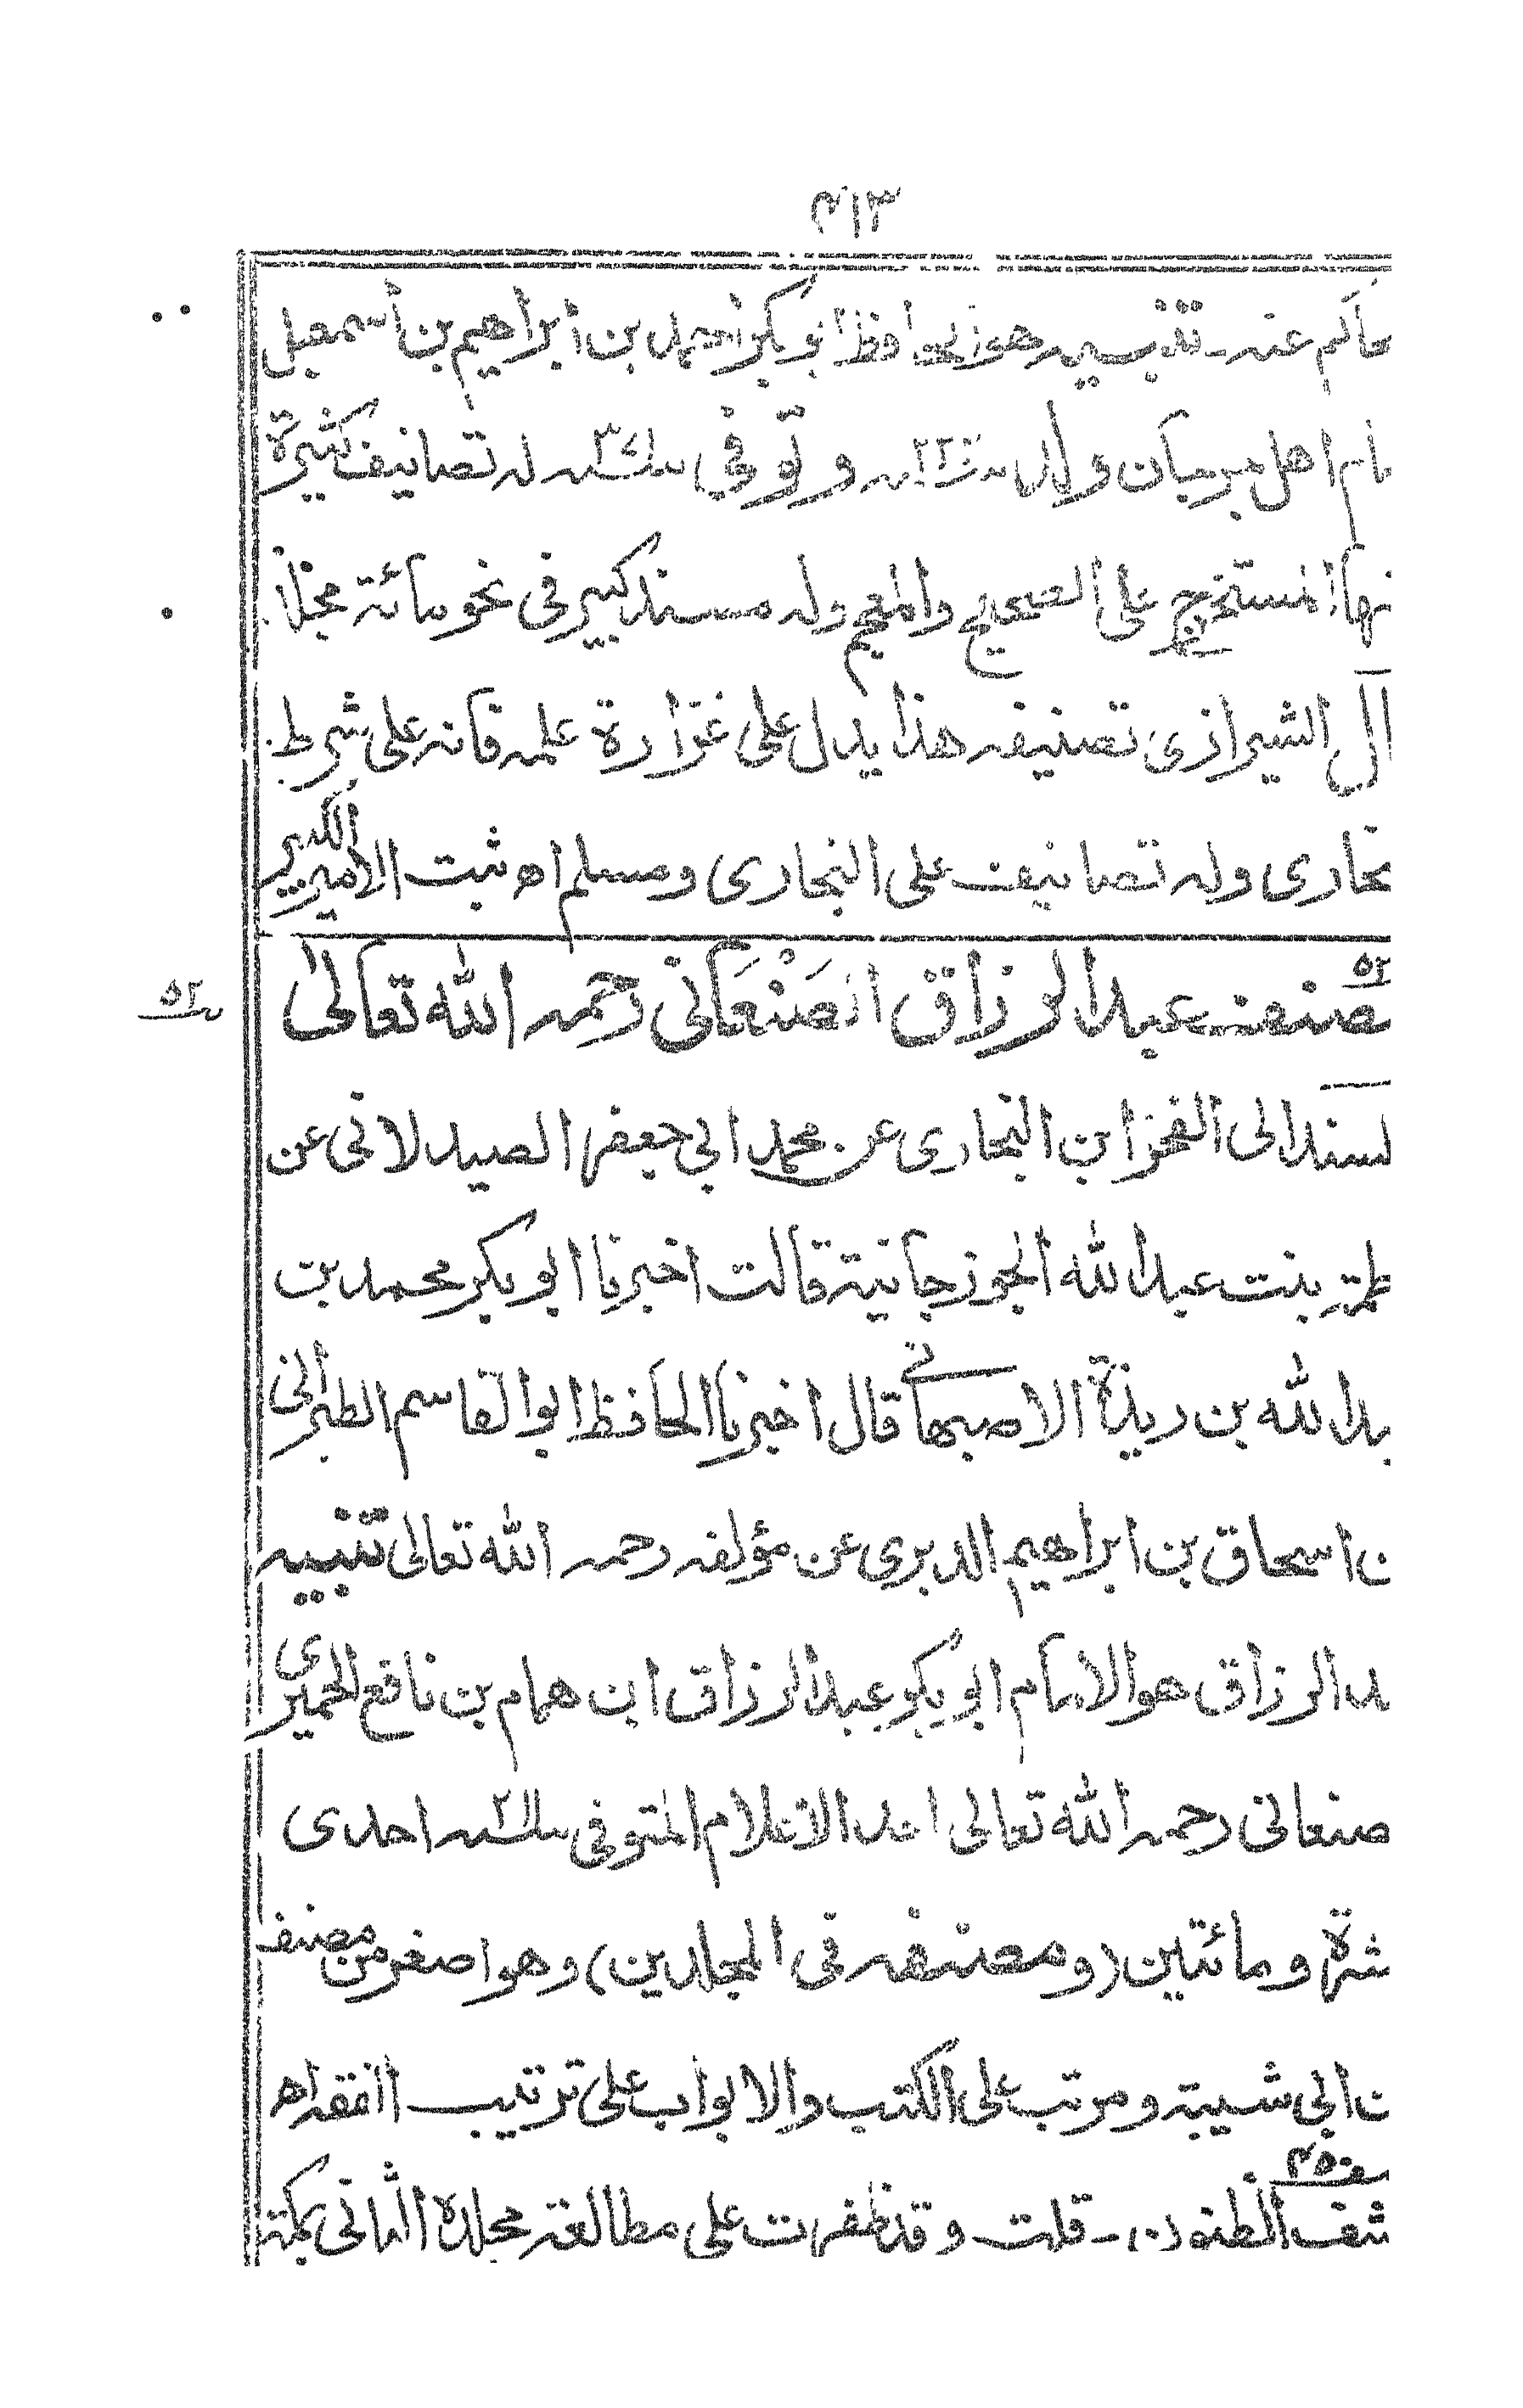 ٤١٣
حاكم عنه - تنبيه هو الحافظ ابو بكر احمد بن ابراهيم بن اسمعيل
مام اهل جرجان ولد وتوفي سنة ٣٧١ له تصانيف كثيرة
نها المستخرج على الصحيح والمعجم وله مسند كبير في نحو مائة مجلد
ال الشيرازى تصنيفه هذا يدل على غزارة علمه فانه على شرط
بخارى وله تصانيف على البخارى ومسلم اه ثبت الامير الكبير
صنف عبد الرزاق الصَنْعَانى رحمه الله تعالى
٥٢
٥٢
لسند الى الفخر ابن البخارى عن محمد ابي جعفر الصيدلانى عن
طمة بنت عبد الله الجوزجانية قالت اخبرنا ابو بكر محمد بن
بد الله بن ريذة الاصبهانى قال اخبرنا الحافظ ابو القاسم الطبرانى
ن اسحاق بن ابراهيم الدبرى عن مؤلفه رحمه الله تعالى تنبيه
بد الرزاق هو الامام ابو بكر عبد الرزاق ابن همام بن نافع الحميرى
صنعانى رحمه الله تعالى احد الاعلام المتوفى سنة ٢١١ احدى
شرة ومائتين (ومصنفه فى المجلدين) وهو اصغر من مصنف
ن ابى شيبة ومرتب على الكتب والابواب على ترتيب الفقه اه
شف الظنون - قلت وقد ظفرت على مطالعة مجلده الثانى بمكة